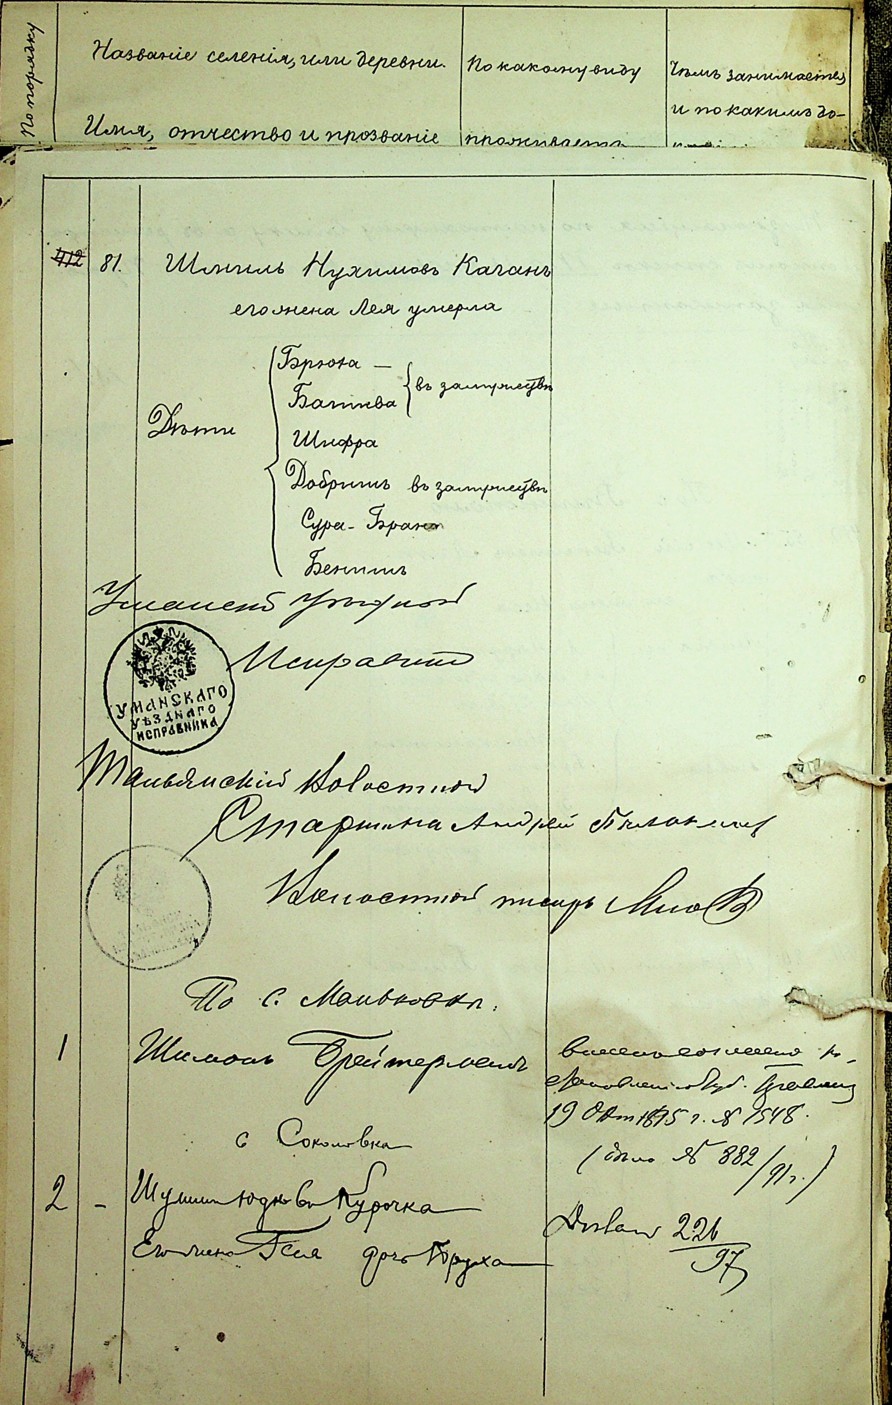 По порядку
Названіе селенія, или деревни.
Имя, отчество и прозваніе
По какому виду
проживаетъ
Чѣмъ занимается
и по какимъ до-
412 81. Шмиль Нухимовъ Каганъ
его жена Лея умерла
Дѣти
Брюха —
Батшева
въ замужествѣ
Шифра
Добришъ въ замужествѣ
Сура-Брана
Бенишъ
Уманскій Уѣздный
Исправникъ
УМАНСКАГО
УѢЗДНАГО
ИСПРАВНИКА
Тальянскій Волостной
Старшина Андрей
Волостной писарь
По с. Маньковкѣ.
1 Шимонъ Брейтерманъ
внесенъ согласно по-
становленію Губ. Правленія
19 Окт 1895 г. № 7548.
(дѣло № 882/91 г.)
с Соколовка
2 - Шулим Юдковъ Курочка
Его жена Бруха
226
97